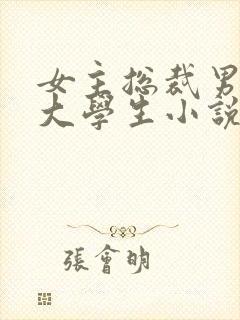 女主总裁男
大學生小說
張會明